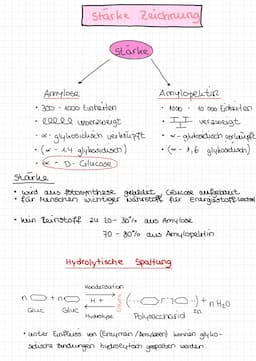 Stärke Zeichnung
Stärke
Amylose
Amylopektin
• 300 - 1000 Einheiten
• unverzweigt
• α- glykosidisch verknüpft
• (α - 1,4 glykosidisch)
• α - D - Glucose
• 1000 - 10 000 Einheiten
• verzweigt
• α- glykosidisch verknüpft
• (α - 1,6 glykosidisch)
Stärke
• wird aus Fotosynthese gebildet Glucose aufgebaut
• für Menschen wichtiger Nährstoff für Energiestoffwechsel
• kein Reinstoff zu 20 - 30% aus Amylose
70 - 80% aus Amylopektin
Hydrolytische Spaltung
Kondensation
n + n H + + n H₂O
Gluc Gluc Hydrolyse Enzyme Polysaccharid
• unter Einfluss von (Enzymen / ) können glyko-
sidische Bindungen hydrolytisch gespalten werden